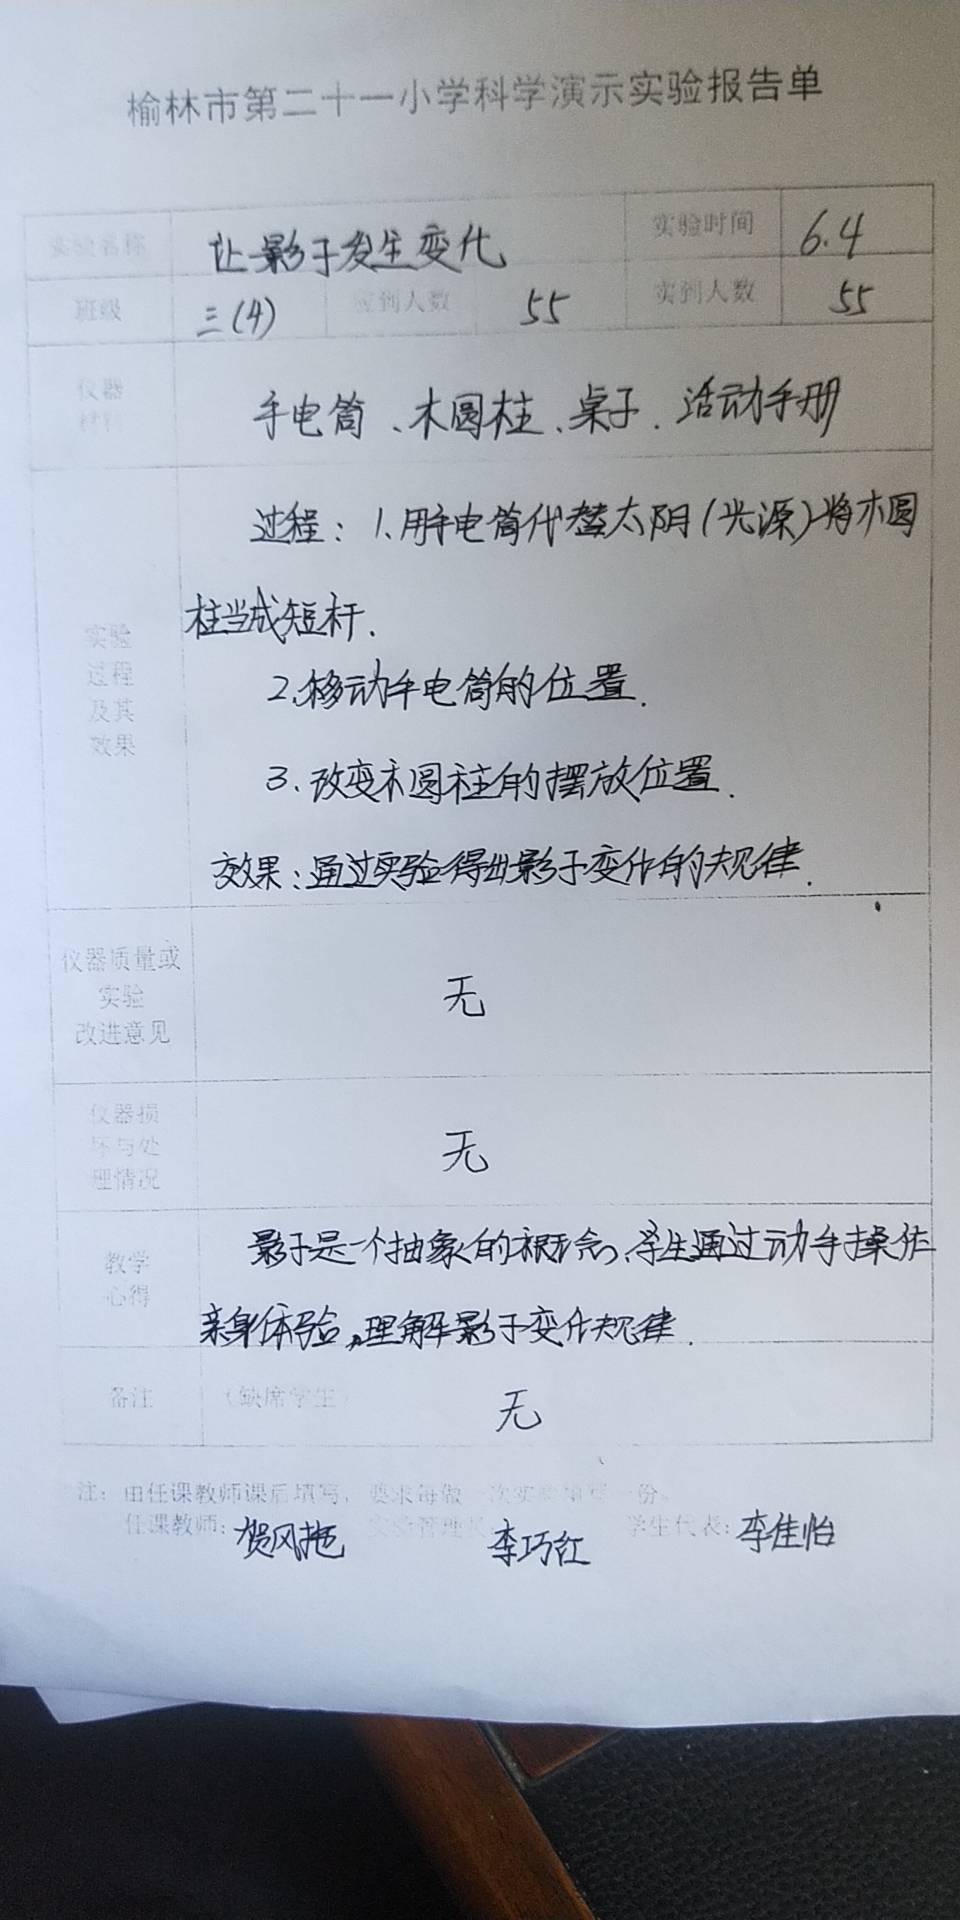 榆林市第二十一小学科学演示实验报告单
实验名称 让影子发生变化 实验时间 6.4
班级 三(4) 应到人数 55 实到人数 55
仪器
材料
手电筒、木圆柱、桌子、活动手册
实验
过程
及其
效果
过程：1.用手电筒代替太阳(光源)将木圆
柱当成短杆.
2.移动手电筒的位置.
3.改变木圆柱的摆放位置.
效果：通过实验得出影子变化的规律.
仪器质量或
实验
改进意见
无
仪器损
坏与处
理情况
无
教学
心得
影子是一个抽象的概念、学生通过动手操作
亲身体验,理解影子变化规律.
备注 (缺席学生) 无
注：由任课教师课后填写，要求每做一次实验填写一份。
任课教师: 贺风艳 实验管理员: 李巧红 学生代表: 李佳怡